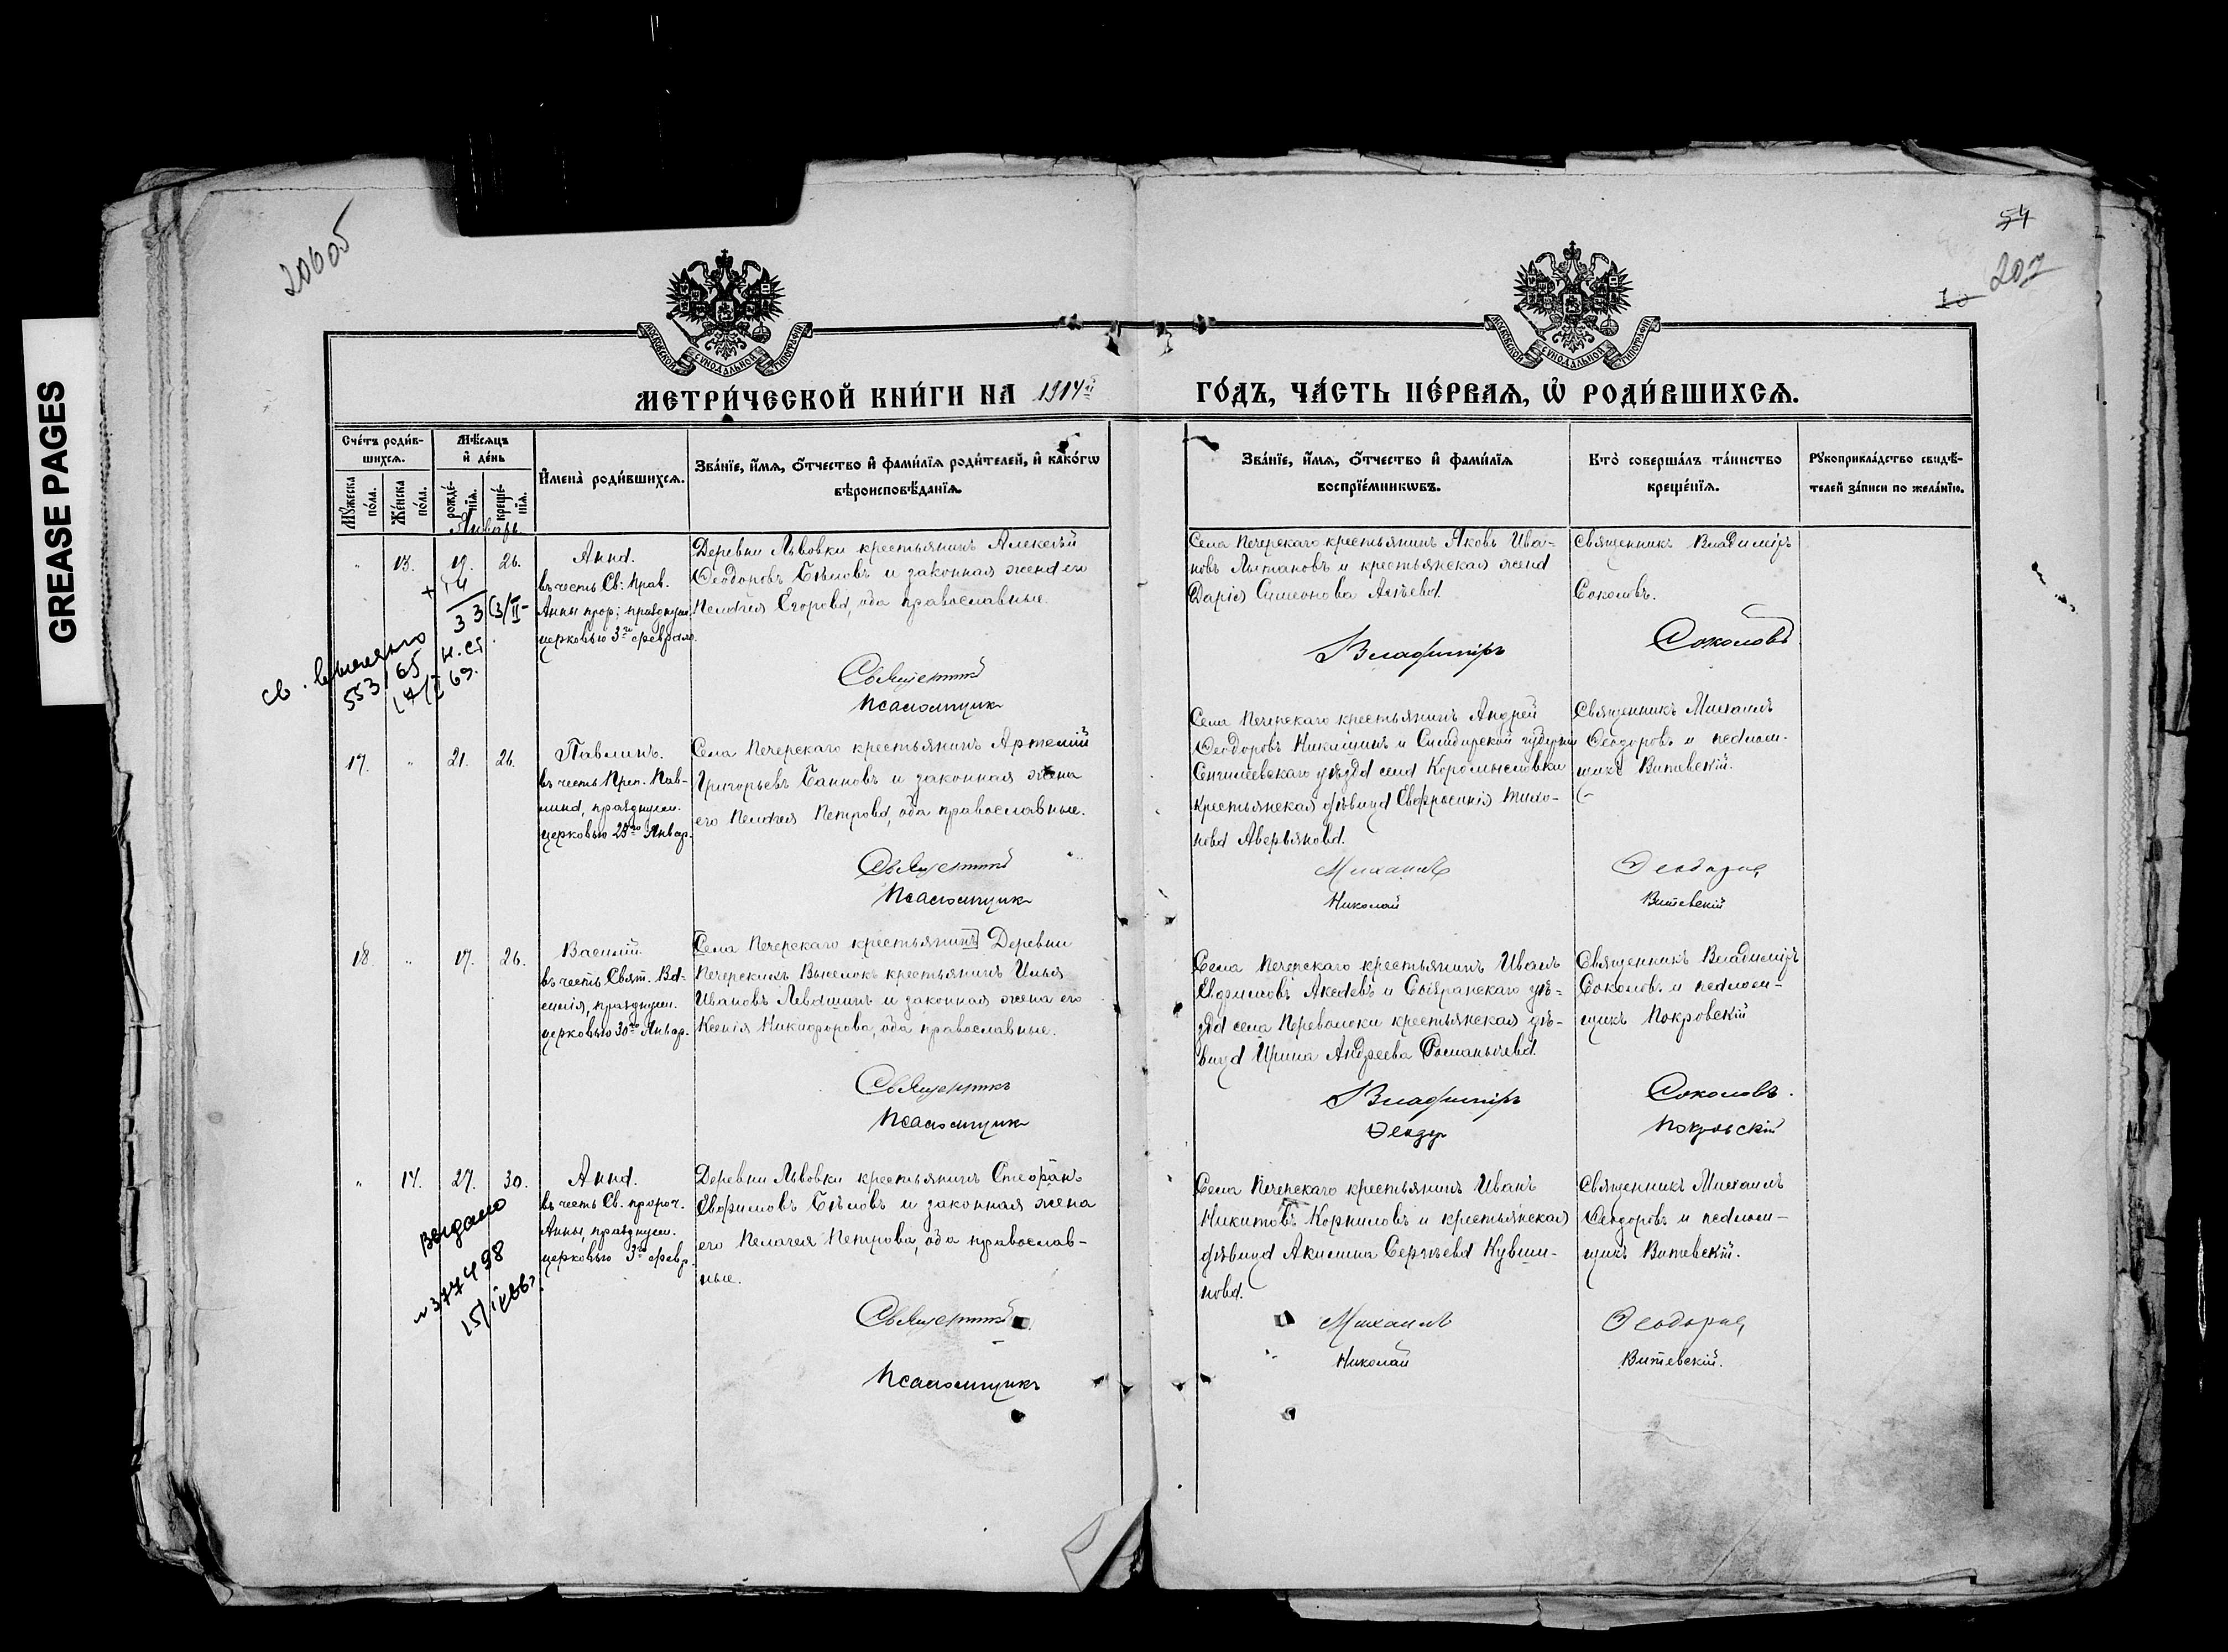 GREASE PAGES
206об
54
10 207
МОСКОВСКОЙ СѴНОДАЛЬНОЙ ТИПОГРАФІИ
МОСКОВСКОЙ СѴНОДАЛЬНОЙ ТИПОГРАФІИ
МЕТРИ́ЧЕСКОЙ КНИ́ГИ НА 1914й
ГО́ДЪ, ЧА́СТЬ ПЕ́РВАЯ, Ѡ҆ РОДИ́ВШИХСЯ.
Сче́тъ роди́в-
шихся.
Мѣ́сяцъ
и҆ де́нь
Мꙋ́жеска по́ла.
Же́нска по́ла.
рожде́-
нїя.
креще́-
нїя.
И҆мена̀ роди́вшихся.
Зва́нїе, и҆́мя, ѻ҆́тчество и҆ фами́лїя роди́телей, и҆ како́гѡ
вѣроисповѣ́данїя.
Зва́нїе, и҆́мя, ѻ҆́тчество и҆ фами́лїя
воспрїе́мникѡвъ.
Кто̀ соверша́лъ та́инство
креще́нїя.
Рꙋкоприкла́дство свидѣ́-
телей за́писи по жела́нїю.
Январь.
" 13. 19. 26.
Анна.
въ честь Св. Прав.
Анны прор; празднуем.
церковью 3го февраля.
Деревни Львовки крестьянинъ Алексѣй
Ѳеодоровъ Бѣловъ и законная жена его
Пелагія Егорова, оба православные.
Священникъ
Псаломщикъ
Села Печерскаго крестьянинъ Яковъ Ива-
новъ и крестьянская жена
Дарія Симеонова
Владиміръ
Священникъ Владиміръ
Соколовъ.
Соколовъ
+ 14
33 (3/II-
н.ст.
св.
553/65
17. " 21. 26.
Павлинъ.
въ честь Преп. Пав-
лина, празднуем.
церковью 23го Январ.
Села Печерскаго крестьянинъ Артемій
Григорьевъ Банновъ и законная жена
его Пелагея Петрова, оба православные.
Священникъ
Псаломщикъ
Села Печерскаго крестьянинъ Андрей
Ѳеодоровъ Никишинъ и Симбирской губерніи
Сенгилеевскаго уѣзда села Коромысловки
крестьянская дѣвица Евфросинія Тихо-
нова Аверьянова.
Михаилъ
Николай
Священникъ Михаилъ
Ѳеодоровъ и псалом-
щикъ Витевскій.
Ѳеодоровъ
Витевскій
18. " 17. 26.
Василій.
въ честь Свят. Ва-
силія, празднуем.
церковью 30го Январ.
Села Печерскаго крестьянинъ Деревни
Печерскихъ Выселокъ крестьянинъ Илья
Ивановъ Левашинъ и законная жена его
Ксенія Никифорова, оба православные.
Священникъ
Псаломщикъ
Села Печерскаго крестьянинъ Иванъ
Евфимовъ и Сызранскаго уѣ-
зда села Переволоки крестьянская дѣ-
вица Ирина Андреева
Владиміръ
Ѳеодоръ
Священникъ Владиміръ
Соколовъ и псалом-
щикъ Покровскій
Соколовъ.
Покровскій
" 14. 27. 30.
Анна.
въ честь Св. пророч.
Анны, празднуем.
церковью 3го февр.
Деревни Львовки крестьянинъ Стефанъ
Евфимовъ Бѣловъ и законная жена
его Пелагея Петрова, оба православ-
ные.
Священникъ
Псаломщикъ
Села Печерскаго крестьянинъ Иванъ
Никитовъ Корниловъ и крестьянская
дѣвица Акилина Сергѣева Кувши-
нова.
Михаилъ
Николай
Священникъ Михаилъ
Ѳеодоровъ и псалом-
щикъ Витевскій.
Ѳеодоровъ
Витевскій.
Выдано
№ 377498